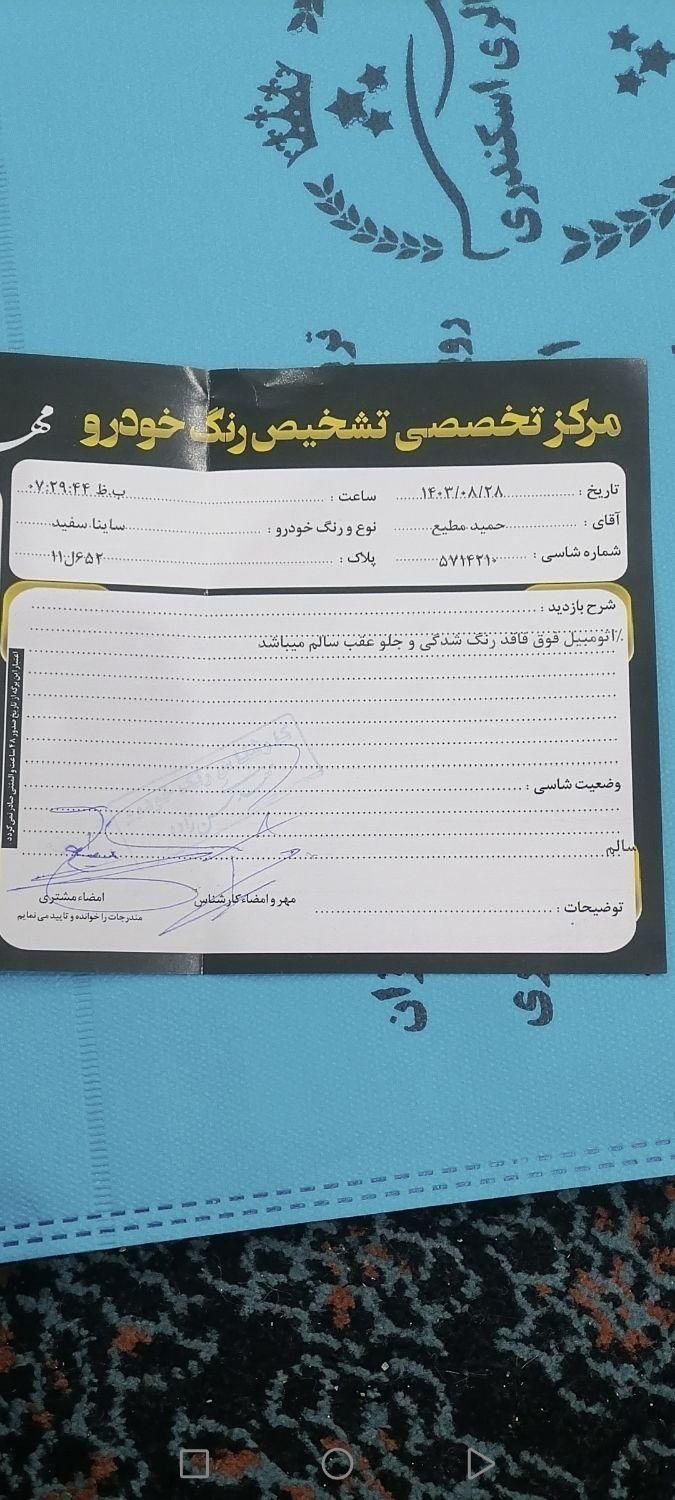 الری اسکندری
مرکز تخصصی تشخیص رنگ خودرو
مهر
تاریخ : ۱۴۰۳/۰۸/۲۸ ساعت : ۰۷:۲۹:۴۴ ب.ظ
آقای : حمید مطیع نوع و رنگ خودرو : ساینا سفید
شماره شاسی : ۵۷۱۴۲۱۰ پلاک : ۶۵۲ل۱۱
شرح بازدید :
٪اتومبیل فوق فاقد رنگ شدگی و جلو عقب سالم میباشد
وضعیت شاسی :
سالم
توضیحات :
مهر و امضاء کارشناس
امضاء مشتری
مندرجات را خوانده و تایید می نمایم
اعتبار این برگه از تاریخ صدور ۴۸ ساعت و المثنی صادر نمی گردد